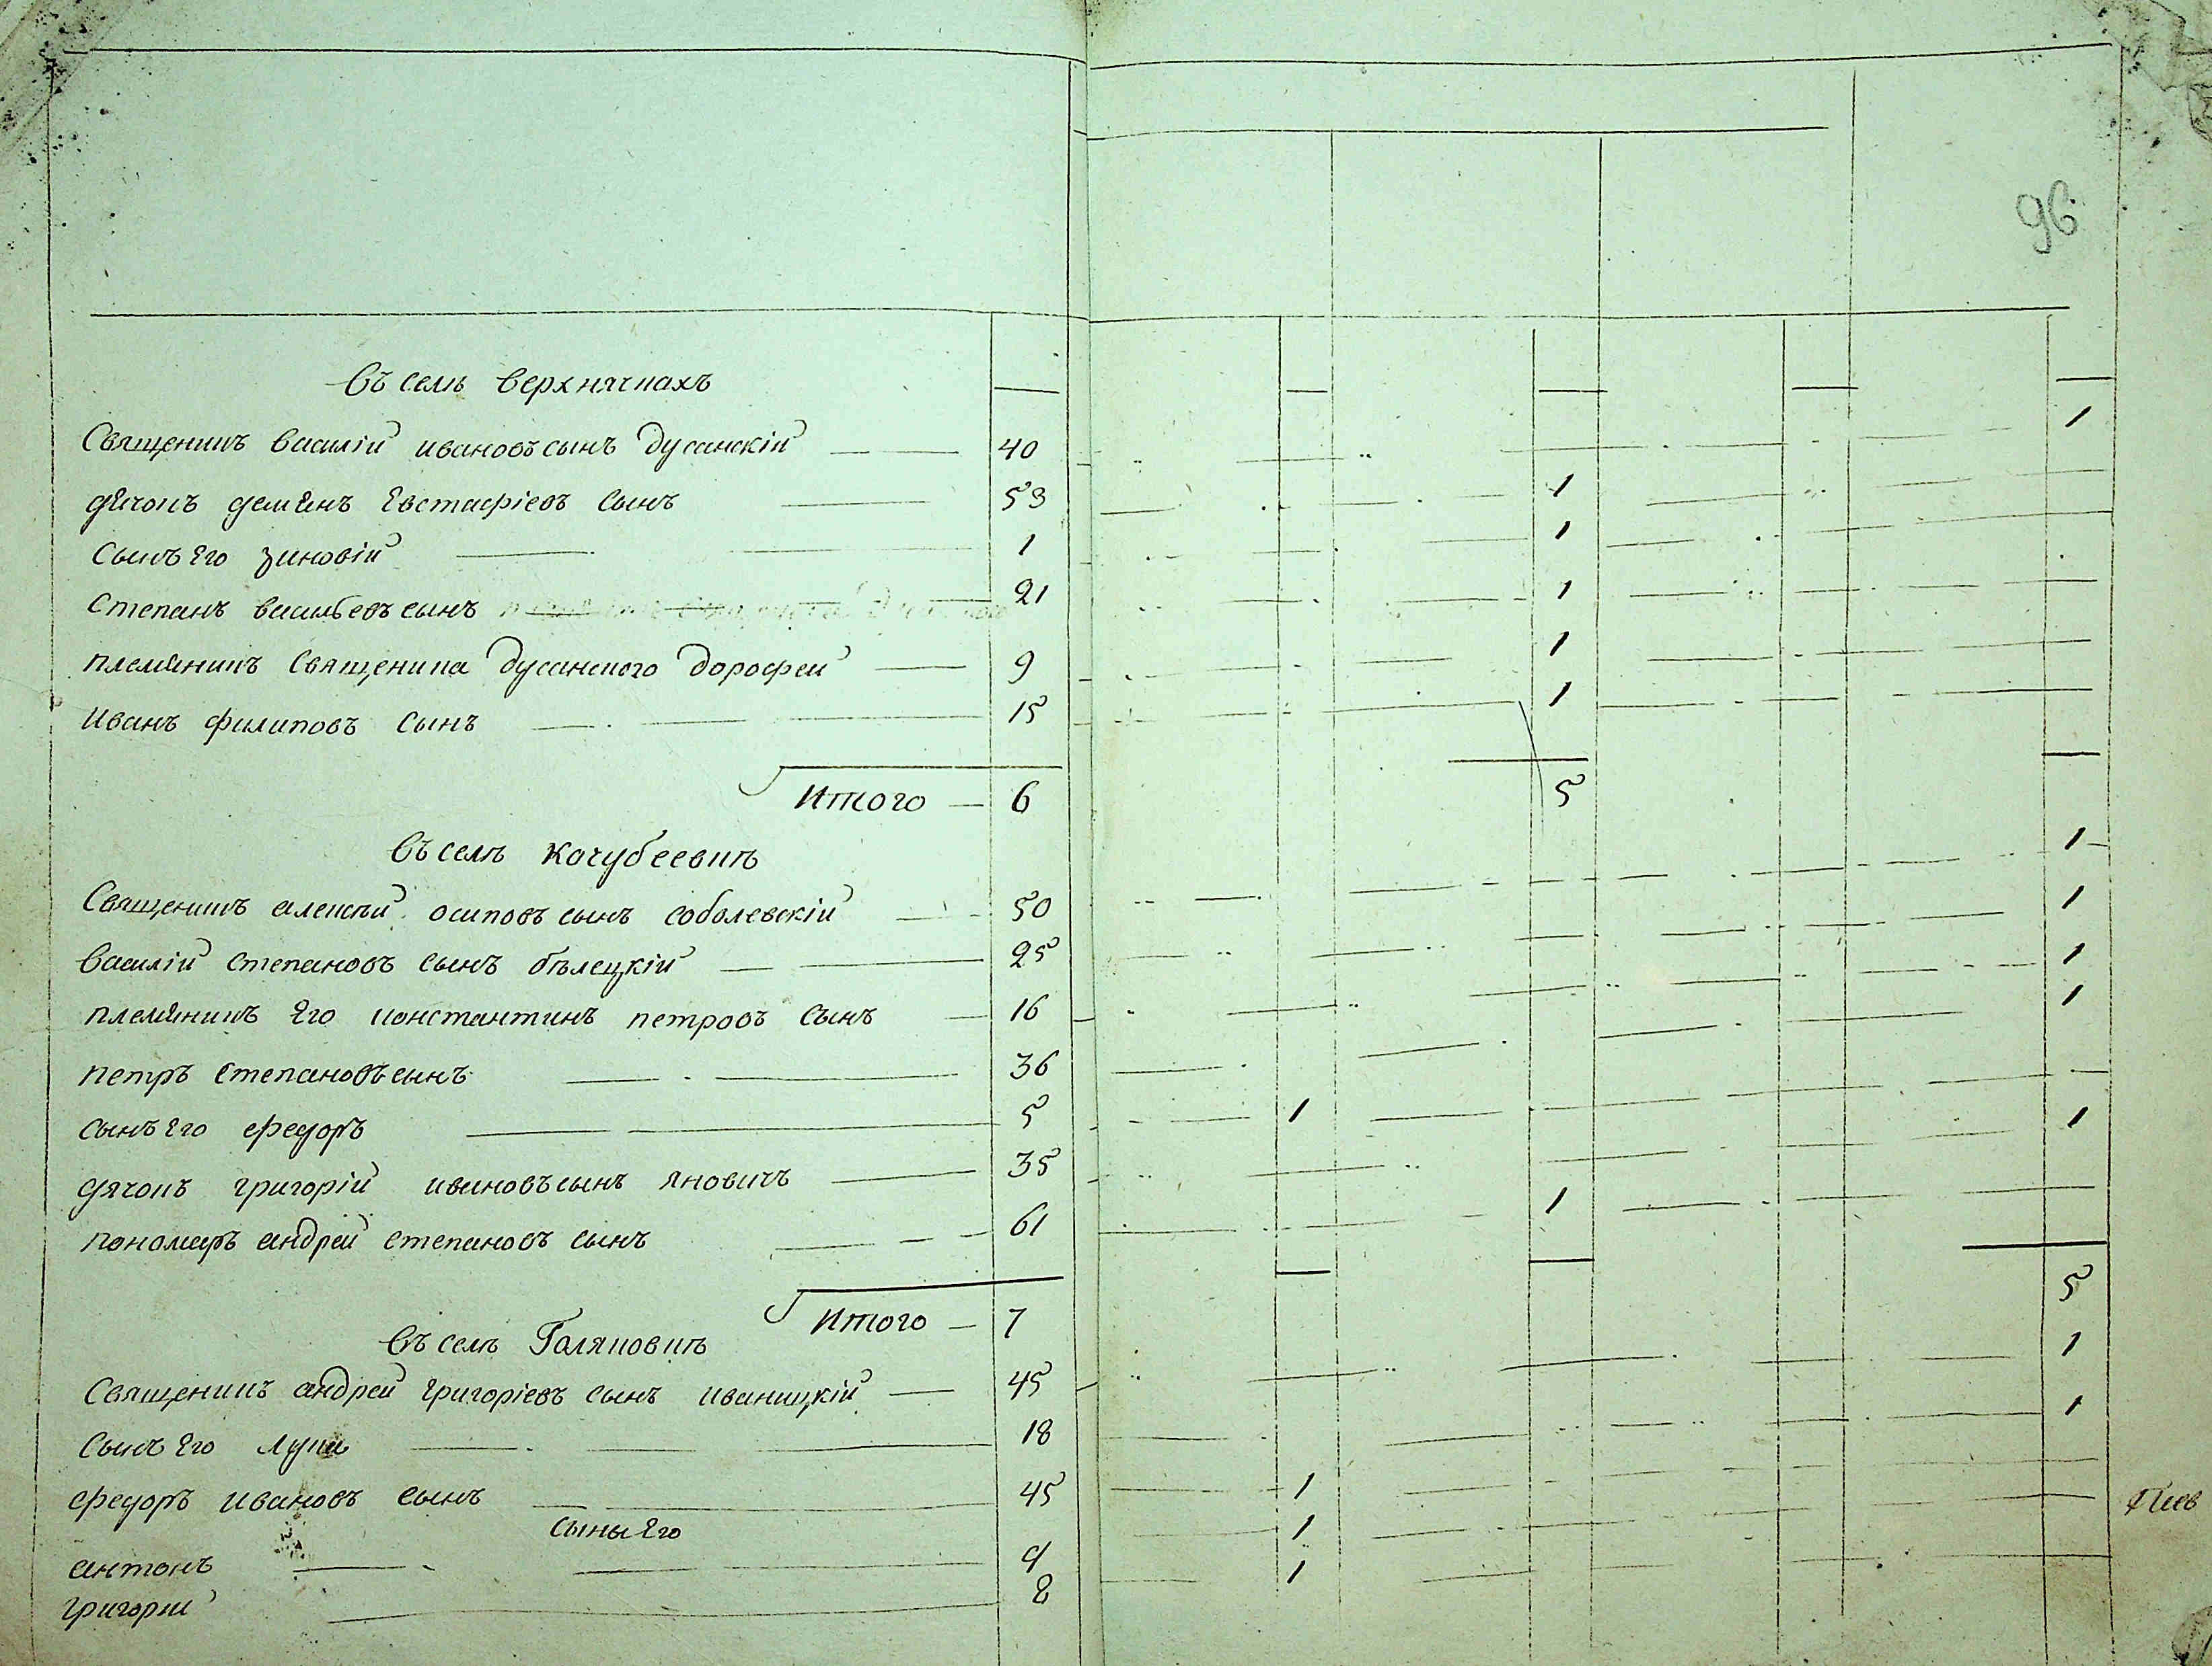 96
Въ селѣ верхнячкахъ
Священикъ василій ивановъ сынъ дусанскій — 40 1
дячокъ демянъ Евстафіевъ сынъ — 53 1
сынъ Его зиновій — 1 1
Степанъ васильевъ сынъ — 21 1
племяникъ священика дусанского дорофеи — 9 1
Иванъ филиповъ сынъ — 15 1
Итого — 6 5
Въ селѣ кочубеевкѣ
Священикъ алексѣй осиповъ сынъ соболевскій — 50 1
василій степановъ сынъ бѣлецкій — 25 1
племяникъ Его константинъ петровъ сынъ — 16 1
петръ степановъ сынъ — 36 1
сынъ Его федоръ — 5 1
дячокъ григорій ивановъ сынъ яновичъ — 35 1
пономаръ андрей степановъ сынъ — 61 1
Итого — 7 5
Въ селѣГоляковкѣ
Священикъ андрей григоріевъ сынъ иваницкій — 45 1
Сынъ Его лука — 18 1
федоръ ивановъ сынъ — 45 1
сыны Его
антонъ — 9 1
григории — 8 1